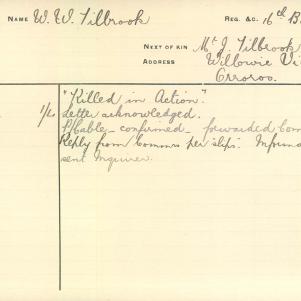 NAME W. W. Tilbrook REG. &C. 16th B
NEXT OF KIN Mr. J. Tilbrook
ADDRESS Willowie Vi
Orroroo.
"Killed in Action."
1/L Letter acknowledged.
P/Cable - confirmed - forwarded Com
Reply from Commrs per slip. Informa
sent Inquirer.